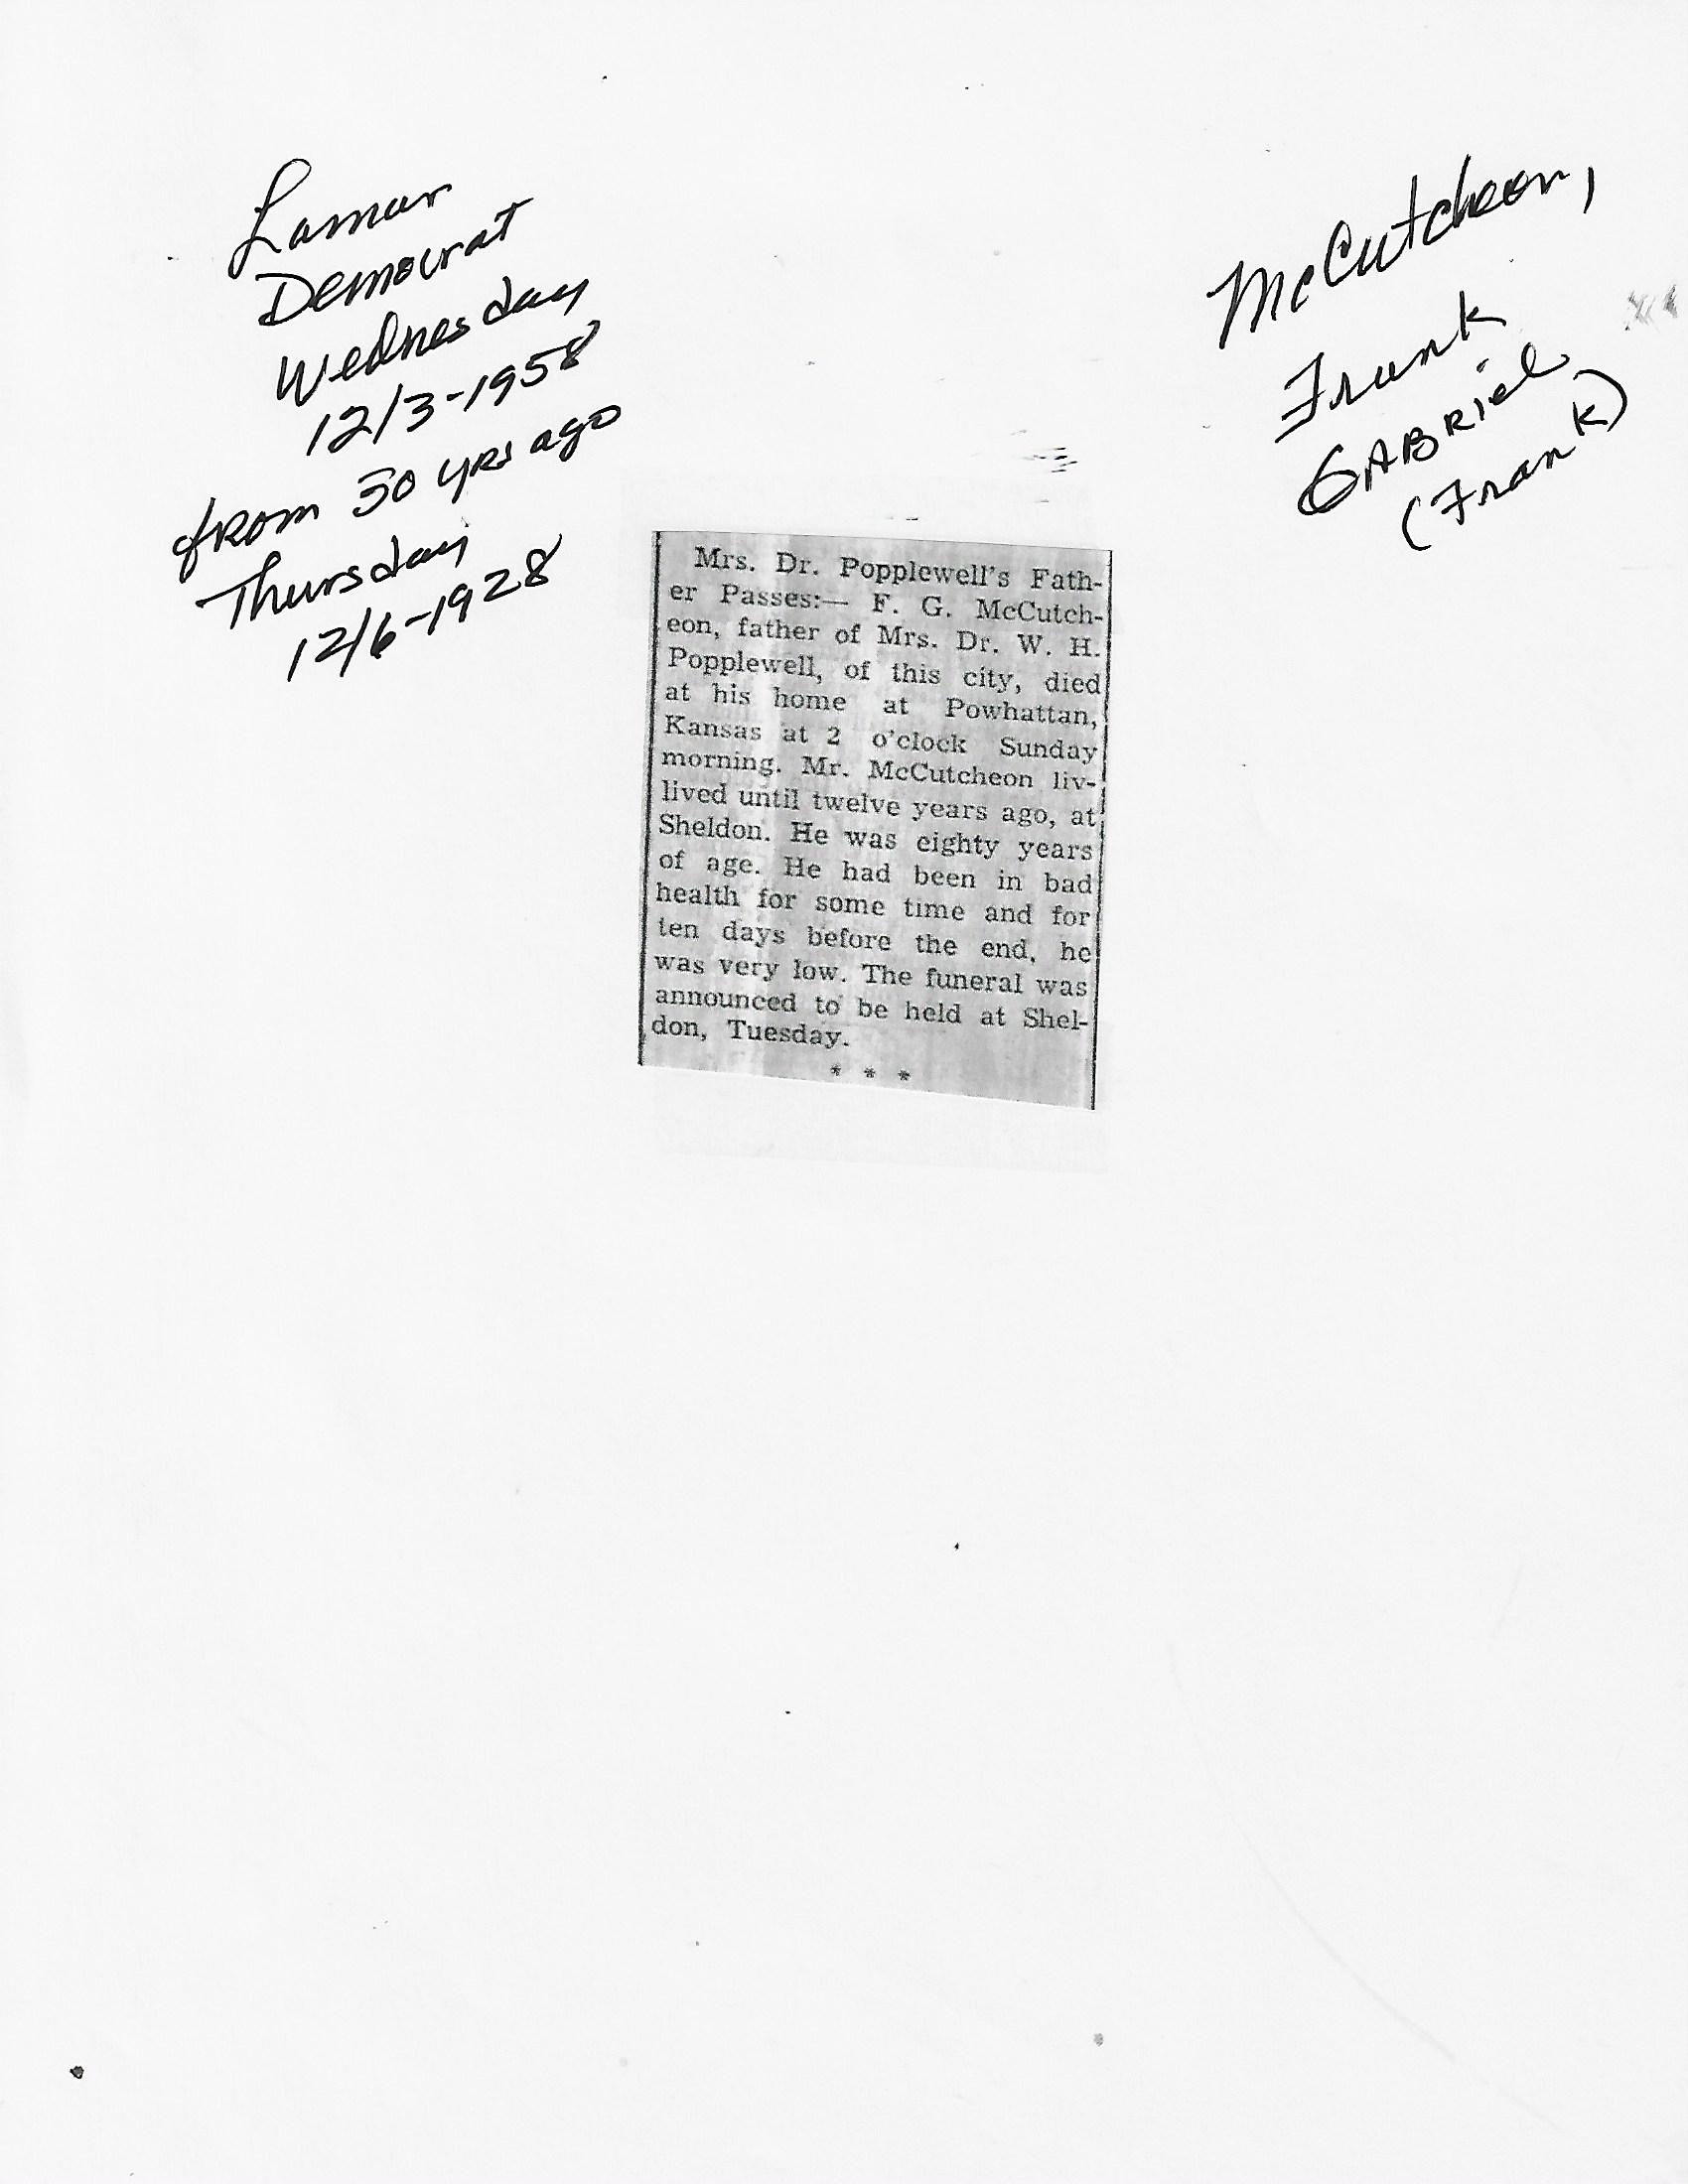 Lamar
Democrat
Wednesday
12/3-1958
from 30 yrs ago
Thursday
12/6-1928
McCutcheon,
Frank
GABRiel
(Frank)
Mrs. Dr. Popplewell's Fath-
er Passes:— F. G. McCutch-
eon, father of Mrs. Dr. W. H.
Popplewell, of this city, died
at his home at Powhattan,
Kansas at 2 o'clock Sunday
morning. Mr. McCutcheon liv-
lived until twelve years ago, at
Sheldon. He was eighty years
of age. He had been in bad
health for some time and for
ten days before the end, he
was very low. The funeral was
announced to be held at Shel-
don, Tuesday.
* * *